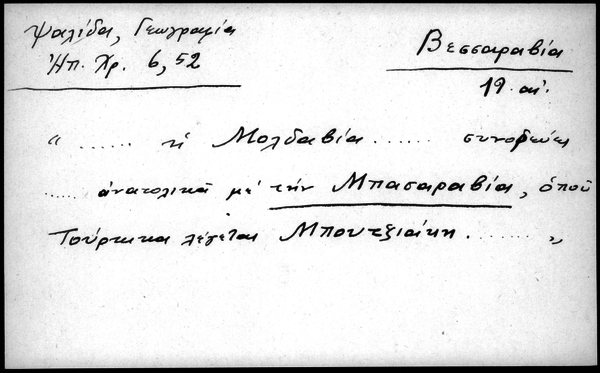 Ψαλίδα, Γεωγραφία
Ἠπ. Χρ. 6, 52
Βεσσαραβία
19. αἰ.
“ ...... ἡ Μολδαβία ...... συνορεύει
..... ἀνατολικά μέ τήν Μπασαραβία, ὁποῦ
Τούρκικα λέγεται Μπουτζιάκη ....... „